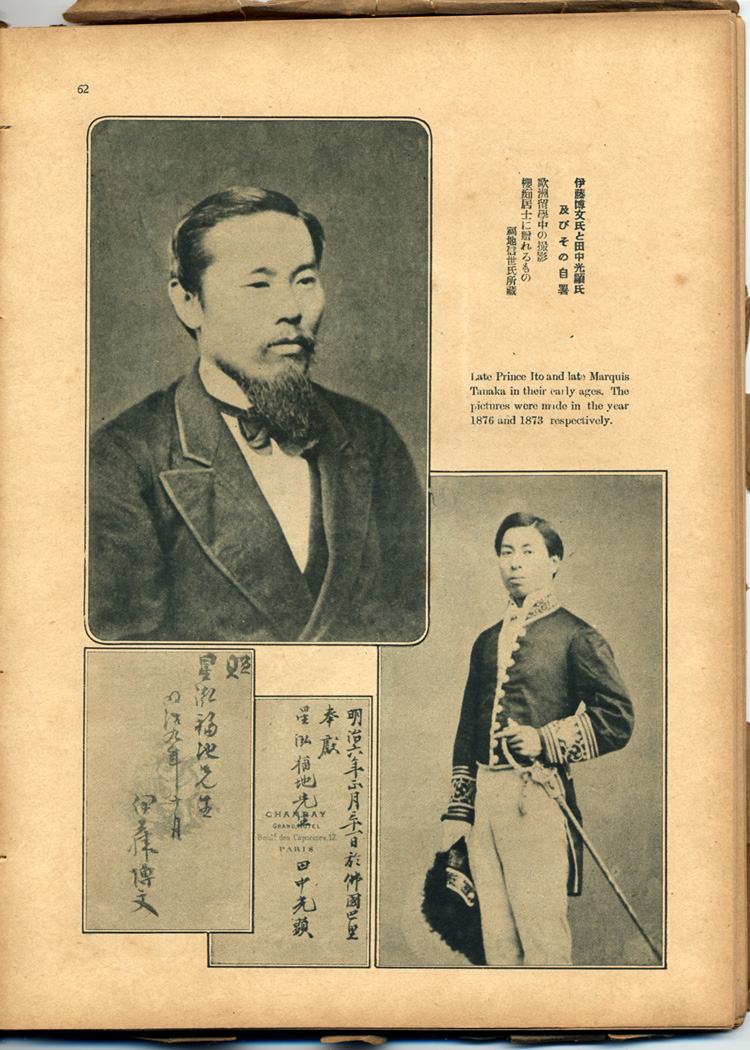 62
伊藤博文氏と田中光顯氏
及びその自署
歐洲留學中の撮影
櫻痴居士に贈れるもの
福地信世氏所藏
Late Prince Ito and late Marquis
Tanaka in their early ages. The
pictures were made in the year
1876 and 1873 respectively.
星泓福地先生
明治九年十月
伊藤博文
明治六年正月三十一日於佛國巴里
奉獻
星泓福地先生
田中光顕
CHAMBAY
GRAND HOTEL
Boulᵈ des Capucines, 12
PARIS